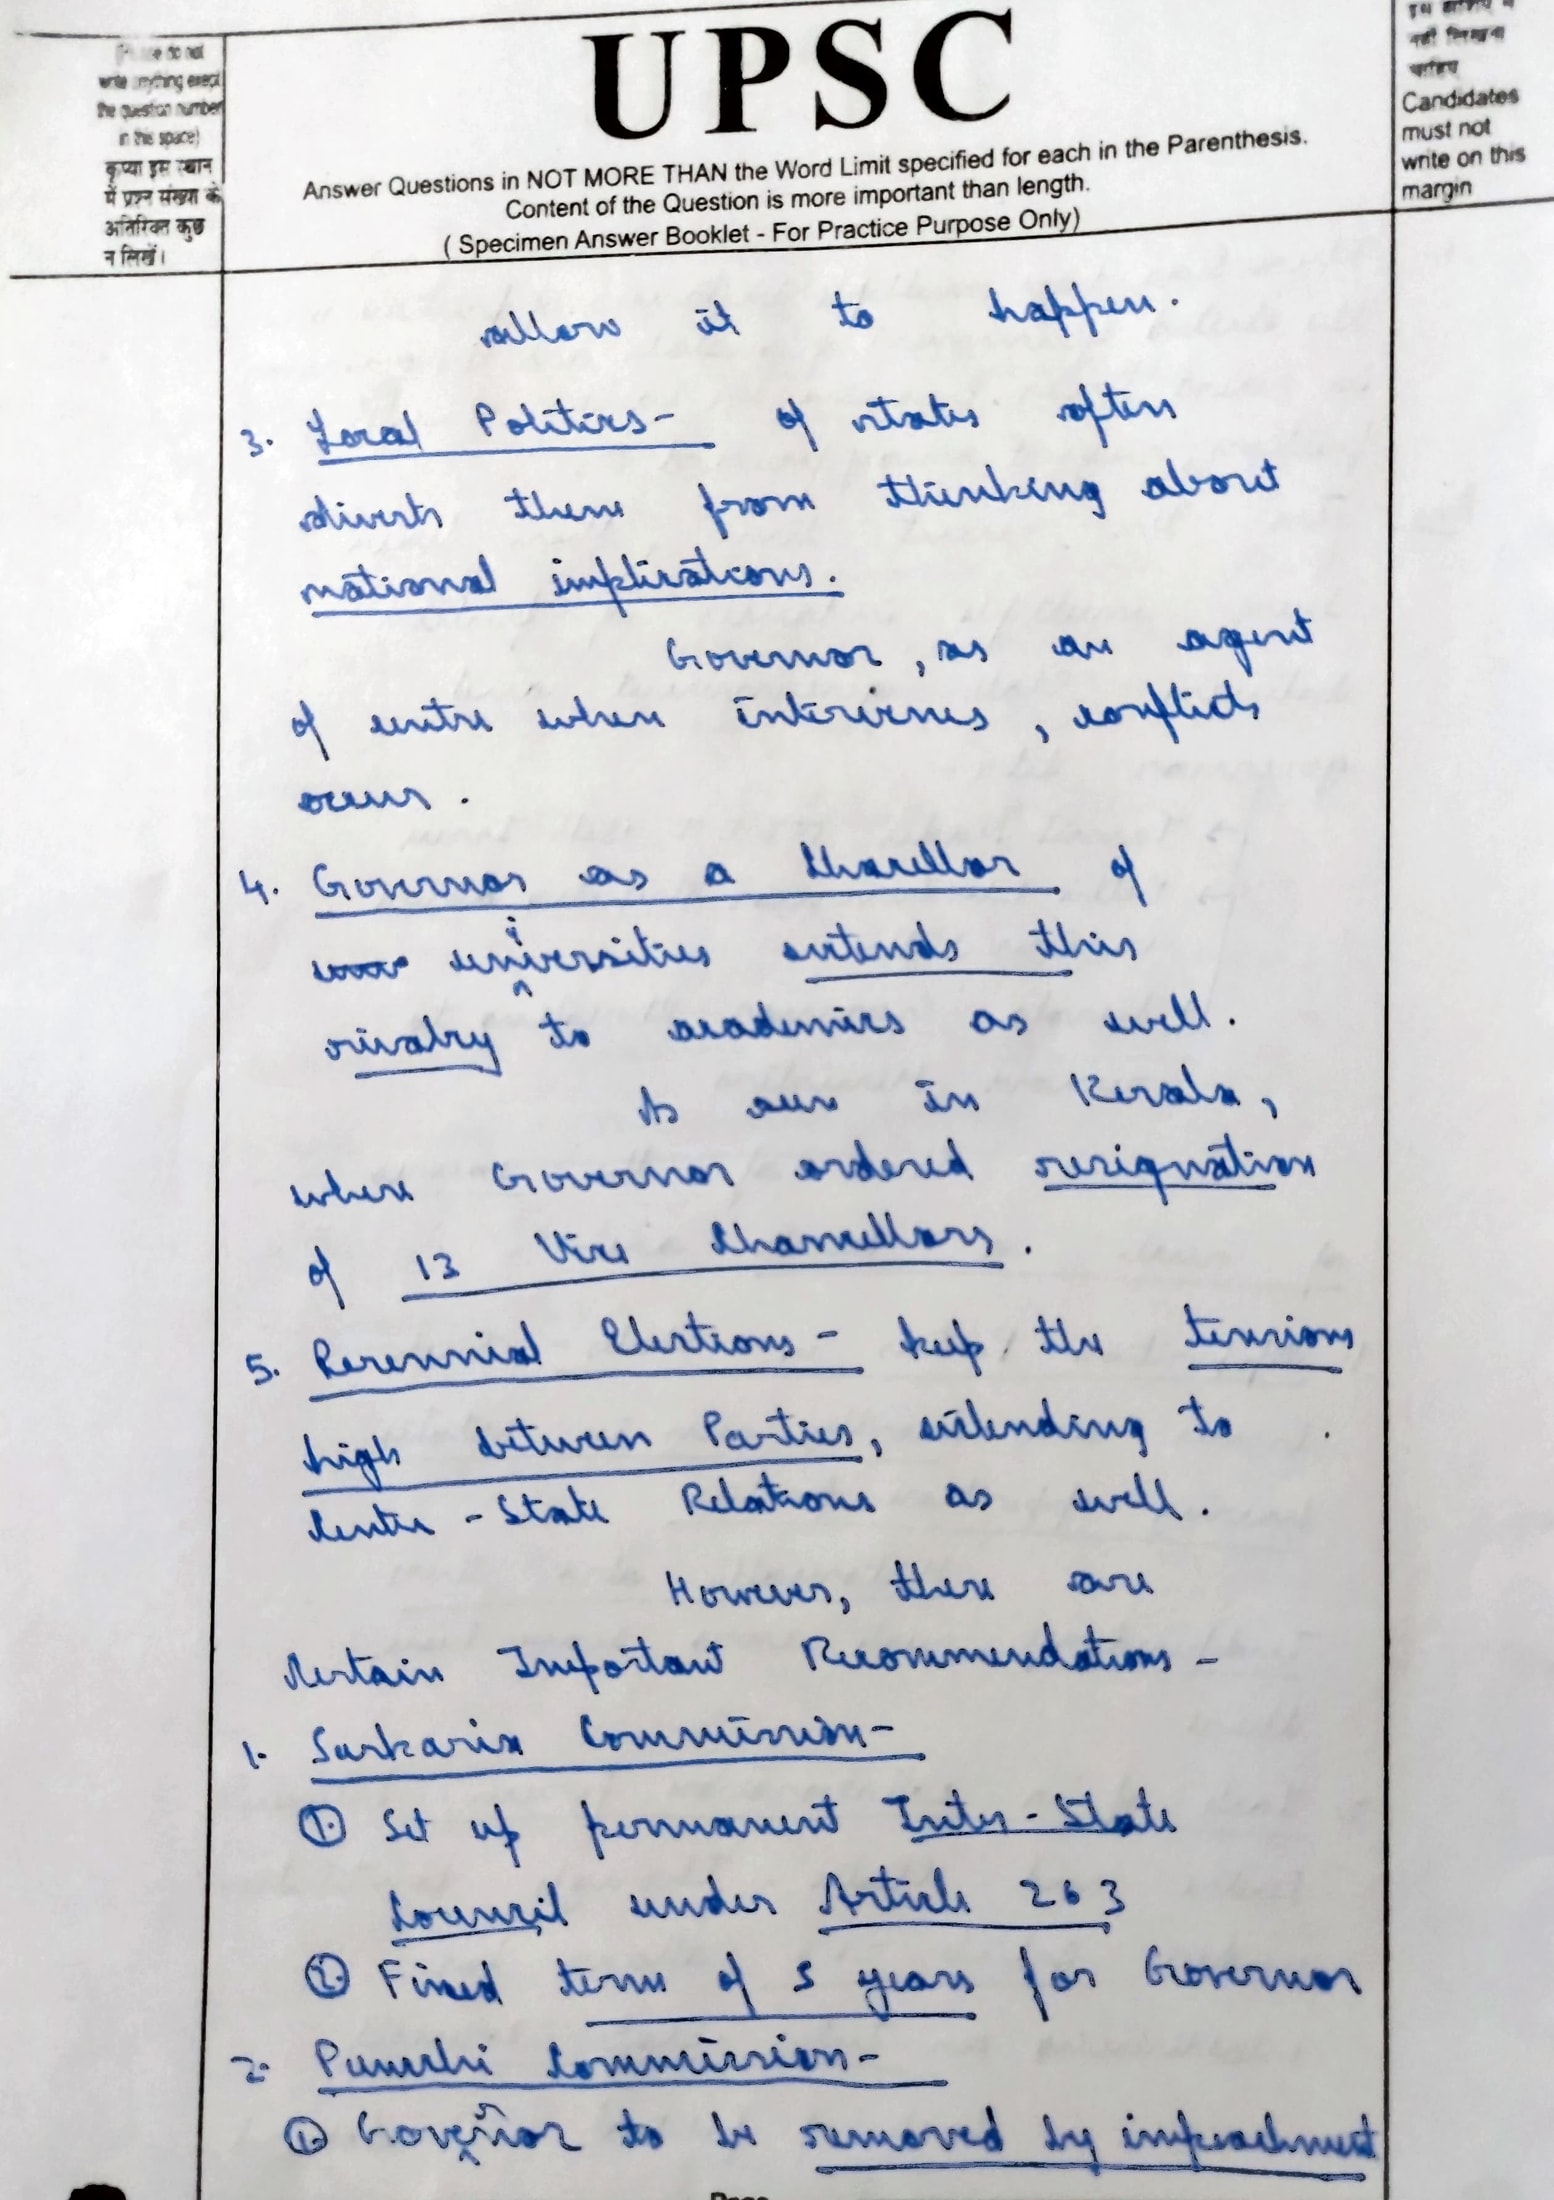 (Please do not
write anything except
the question number
in this space)
कृप्या इस स्थान
में प्रश्न संख्या के
अतिरिक्त कुछ
न लिखें।
UPSC
Answer Questions in NOT MORE THAN the Word Limit specified for each in the Parenthesis.
Content of the Question is more important than length.
( Specimen Answer Booklet - For Practice Purpose Only)
नहीं लिखना
चाहिए
Candidates
must not
write on this
margin
allow it to happen.
3. Local Politics- of states often
diverts them from thinking about
national implications.
Governor, as an agent
of centre when intervenes, conflicts
occur.
4. Governor as a Chancellor of
universities extends this
rivalry to academics as well.
As seen in Kerala,
where Governor ordered resignation
of 13 Vice Chancellors.
5. Perennial Elections- keep the tensions
high between Parties, extending to
Centre-State Relations as well.
However, there are
Certain Important Recommendations-
1. Sarkaria Commission-
① Set up permanent Inter-State
Council under Article 263
② Fixed term of 5 years for Governor
2. Punchhi Commission-
① Governor to be removed by impeachment